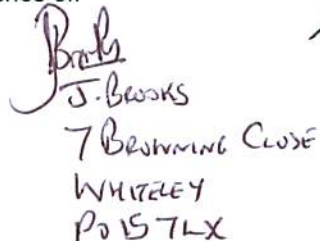 J. BROOKS
7 BROWNING CLOSE
WHITELEY
PO15 7LX